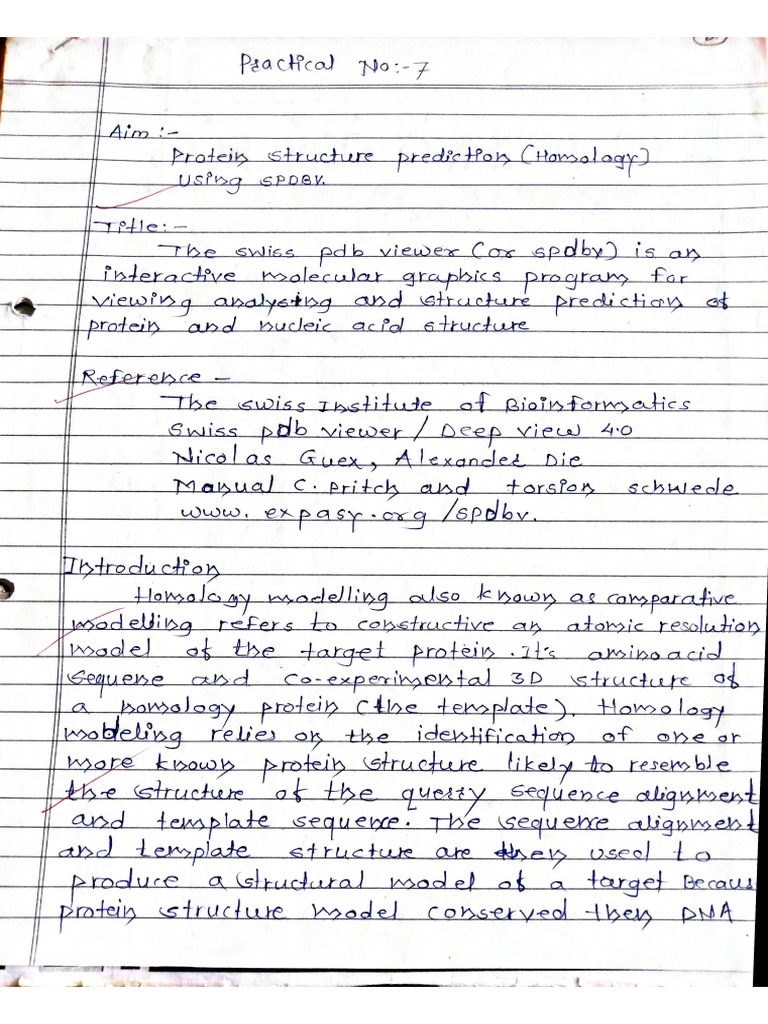 Practical No:-7
Aim :-
Protein structure prediction (Homology)
Using SPDBV.
Title:-
The swiss pdb viewer (or spdbv) is an
interactive molecular graphics program for
viewing analysing and structure prediction of
protein and nucleic acid structure
Reference -
The swiss Institute of Bioinformatics
Swiss pdb viewer / Deep view 4.0
Nicolas Guex, Alexander Die
Manual C. pritch and torsion schwede
www.expasy.org/spdbv.
Introduction
Homology modelling also known as comparative
modelling refers to constructive an atomic resolution
model of the target protein. It's amino acid
sequene and co-experimental 3D structure of
a homology protein (the template). Homology
modeling relies on the identification of one or
more known protein structure likely to resemble
the structure of the querry sequence alignment
and template sequence. The sequene alignment
and template structure are then used to
produce a structural model of a target Becaus
protein structure model conserved then DNA